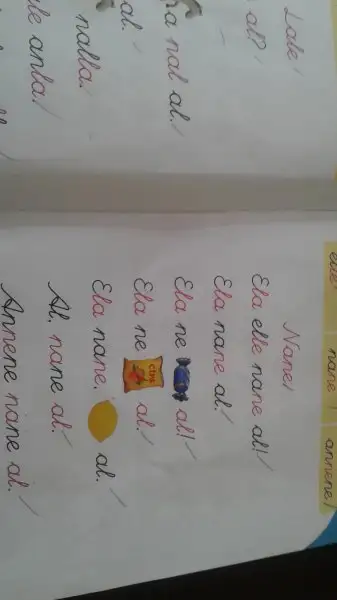 Lale
al?
a nal al.
al.
nalla.
le anla.
elle
nane
annene
Nane
Ela elle nane al!
Ela nane al.
Ela ne al!
Ela ne cips al.
Ela nane, al.
Al, nane al.
Annene nane al.